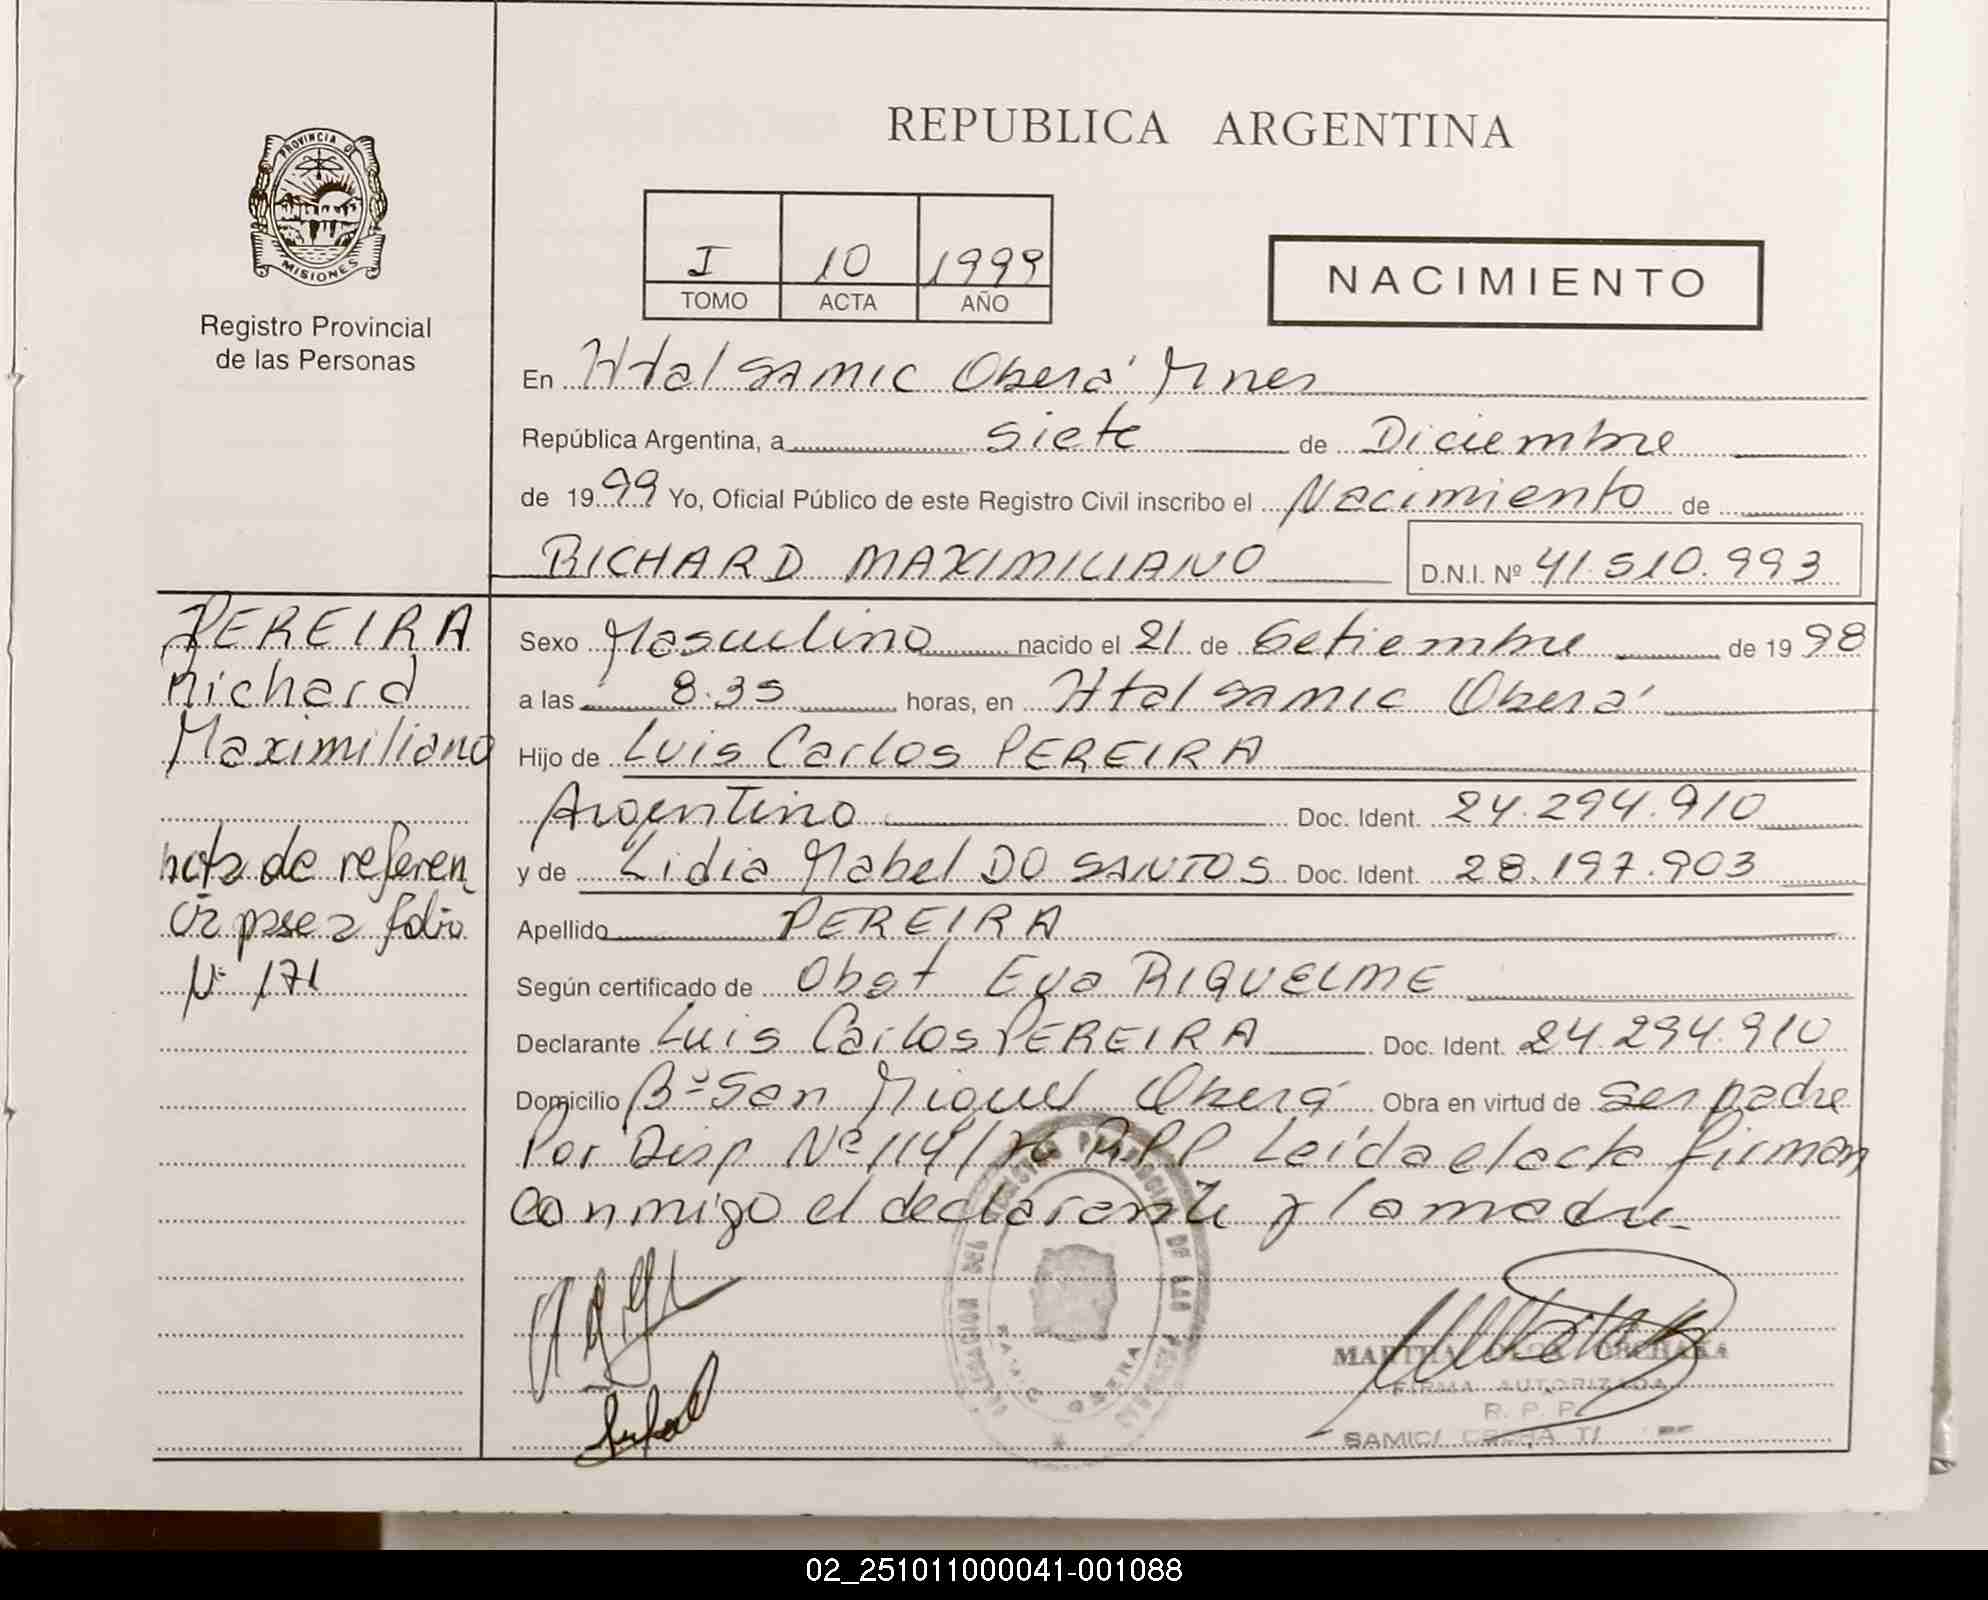 REPUBLICA ARGENTINA
PROVINCIA DE
MISIONES
Registro Provincial
de las Personas
I 10 1999
TOMO ACTA AÑO
NACIMIENTO
En Htal SAMIC Oberá Mnes
República Argentina, a siete de Diciembre
de 1999 Yo, Oficial Público de este Registro Civil inscribo el Nacimiento de
RICHARD MAXIMILIANO D.N.I. Nº 41.510.993
PEREIRA
Richard
Maximiliano
nota de referen
cia pase a folio
Nº 171
Sexo Masculino nacido el 21 de Setiembre de 1998
a las 8.35 horas, en Htal SAMIC Oberá
Hijo de Luis Carlos PEREIRA
Argentino Doc. Ident. 24.294.910
y de Lidia Mabel DO SANTOS Doc. Ident. 28.197.903
Apellido PEREIRA
Según certificado de Obst Eva RIQUELME
Declarante Luis Carlos PEREIRA Doc. Ident. 24.294.910
Domicilio Bº San Miguel Oberá Obra en virtud de ser padre
Por Disp Nº 114/76 R.P.P Leída el acta firman
conmigo el declarante y la madre
MARTHA
FIRMA AUTORIZADA
R. P. P.
SAMIC/
OBERA
02_251011000041-001088